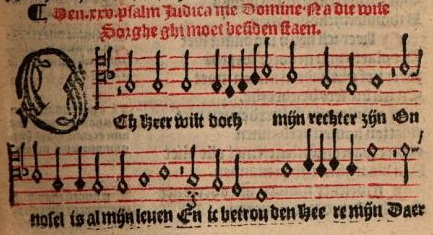 ¶ Den .xxv. psalm Judica me Domine. Na die wise
Sorghe ghi moet besiden staen.
OCh Heer wilt doch mijn rechter zijn On
nosel is al mijn leuen En ic betrou den Hee re mijn Daer